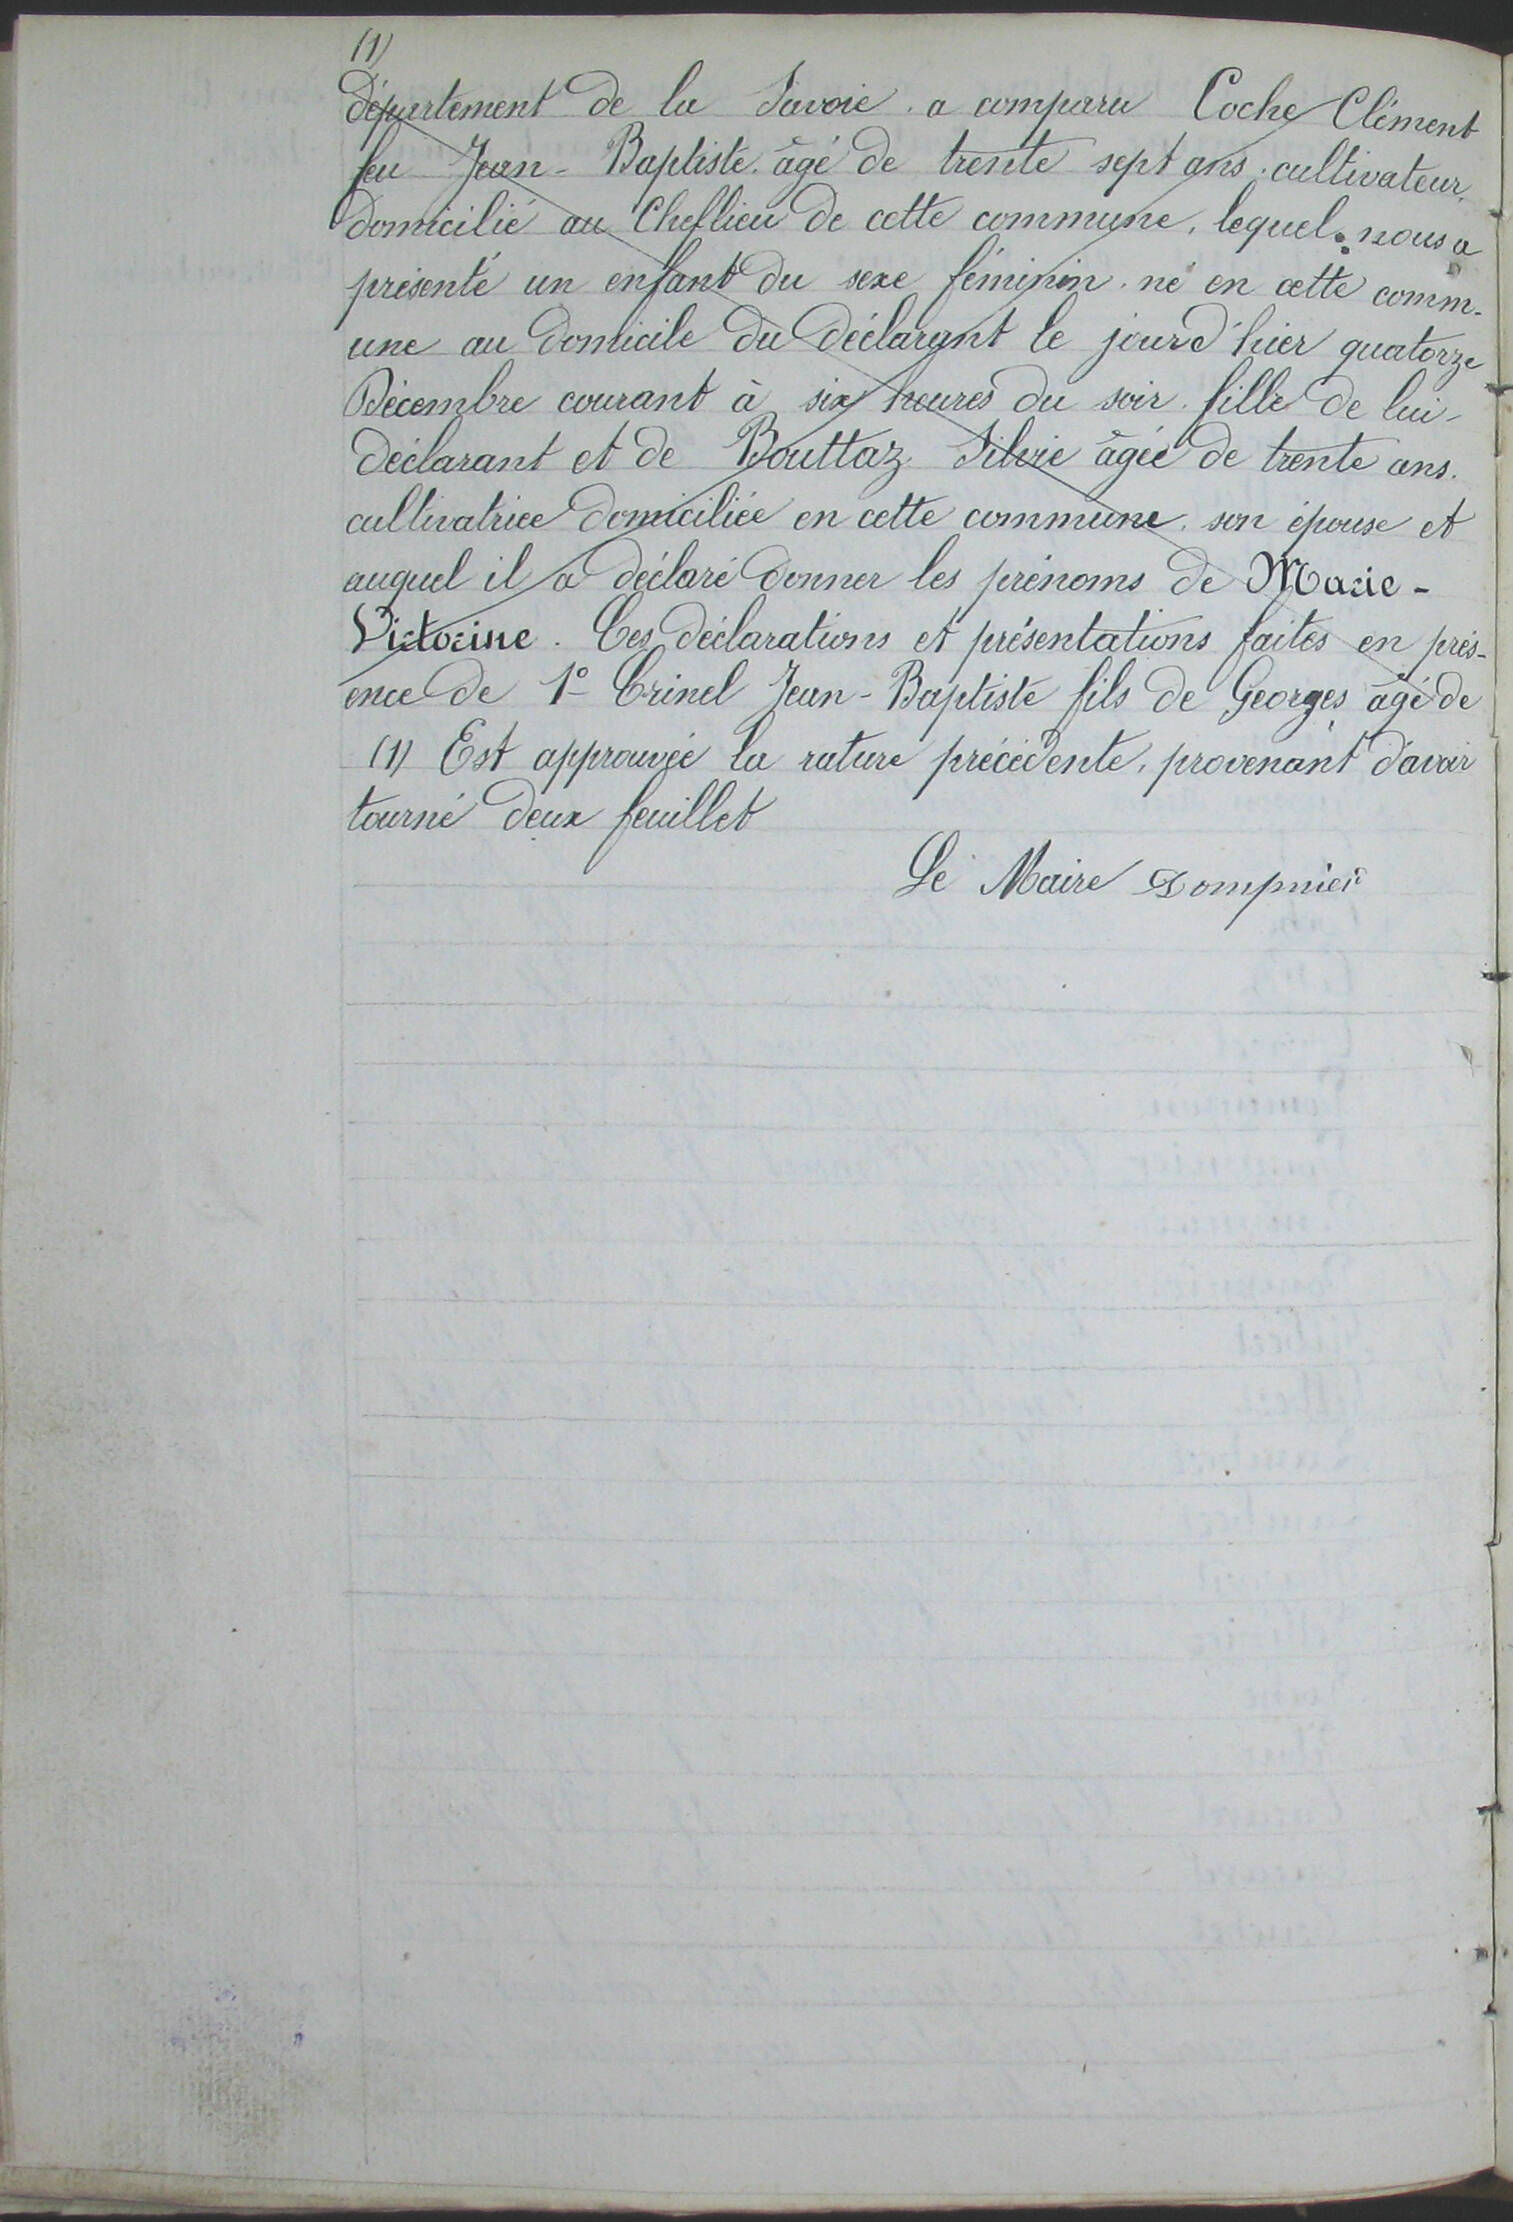 (1)
département de la Savoie. a comparu Coche Clément
feu Jean-Baptiste. âgé de trente sept ans. cultivateur.
domicilié au Cheflieu de cette commune, lequel nous a
présenté un enfant du sexe féminin. né en cette comm-
une au domicile du déclarant le jour d'hier quatorze
Décembre courant à six heures du soir. fille de lui-
déclarant et de Bouttaz Silvie âgée de trente ans.
cultivatrice domiciliée en cette commune. son épouse et
auquel il a déclaré donner les prénoms de Marie-
Victorine. Ces déclarations et présentations faites en prés-
ence de 1º Crinel Jean-Baptiste fils de Georges âgé de
(1) Est approuvée la rature précédente, provenant d'avoir
tourné deux feuillet
Le Maire Dompnier